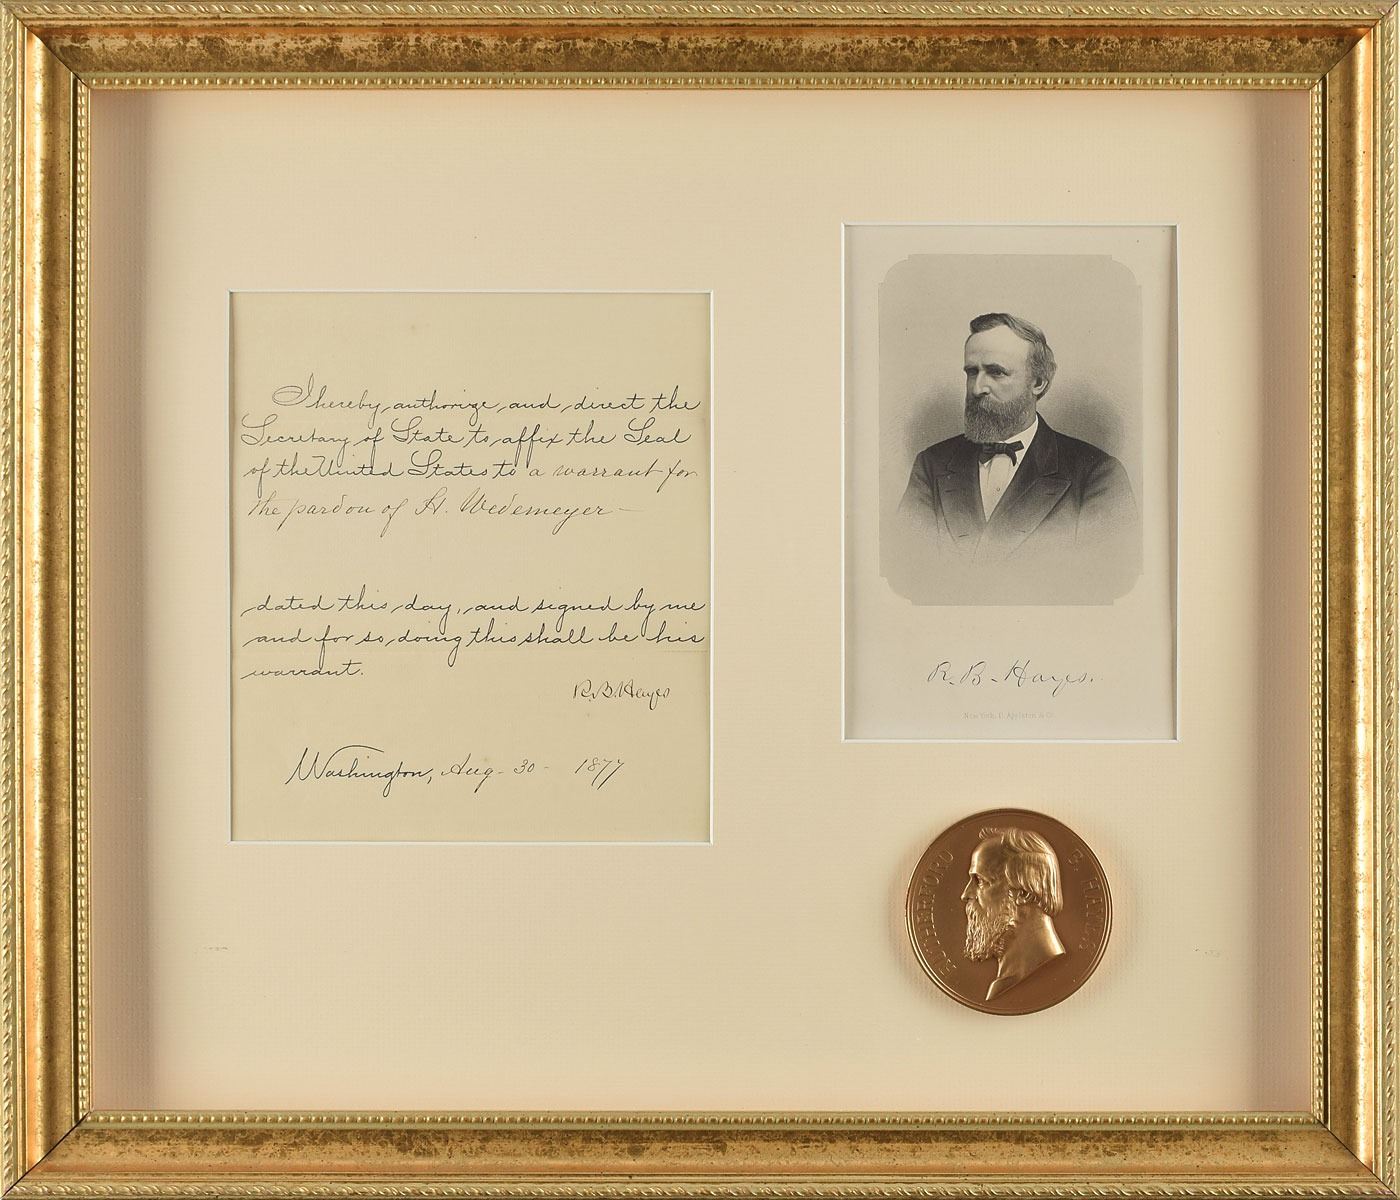 I hereby authorize and direct the
Secretary of State to affix the Seal
of the United States to a warrant for
the pardon of H. Wedemeyer -
dated this day, and signed by me
and for so doing this shall be his
warrant.
R.B. Hayes
Washington, Aug - 30 - 1877
R. B. Hayes.
New York, D. Appleton & Co.
RUTHERFORD B. HAYES